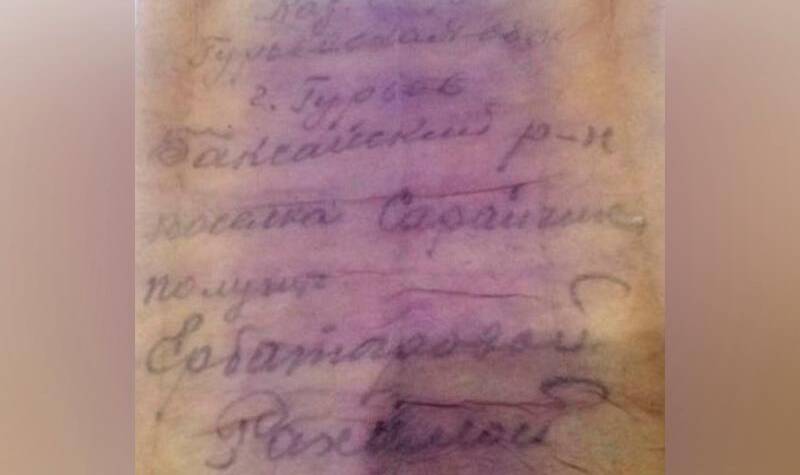 Каз.
Гурьевская обл
г. Гурьев
Баксайский р-н
поселка Сарайчик
получит
Ербатыровой
Рахимой